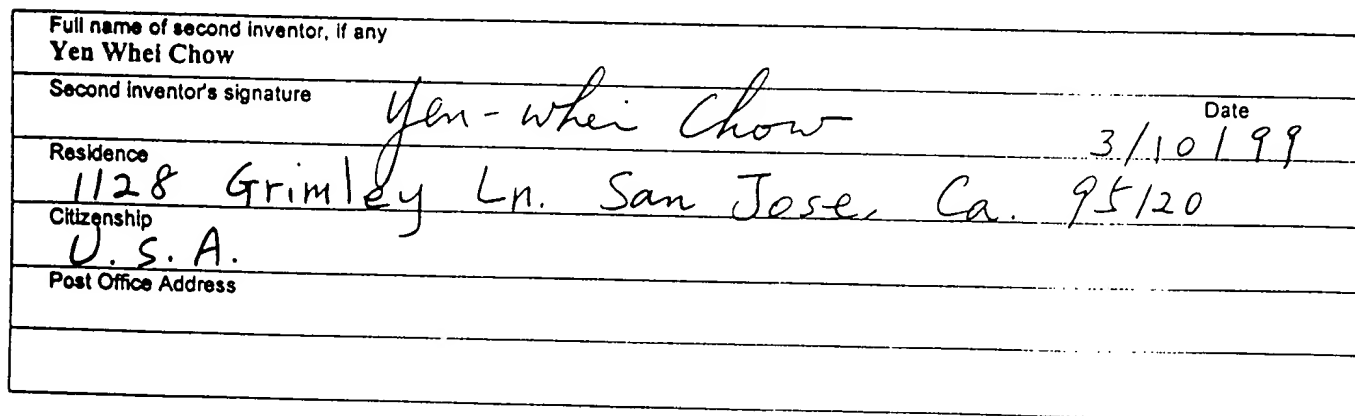 Full name of second inventor, if any
Yen Whei Chow
Second inventor's signature Yen-whei Chow Date
3/10/99
Residence
1128 Grimley Ln. San Jose, Ca. 95120
Citizenship
U.S.A.
Post Office Address